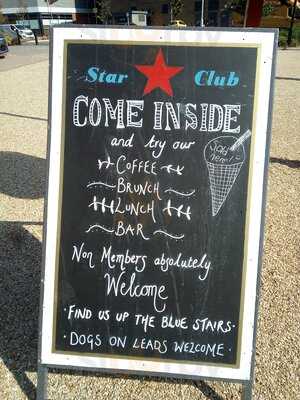 Star Club
COME INSIDE
and try our
COFFEE
BRUNCH
LUNCH
BAR
Non Members absolutely
Welcome
· FIND US UP THE BLUE STAIRS ·
· DOGS ON LEADS WELCOME